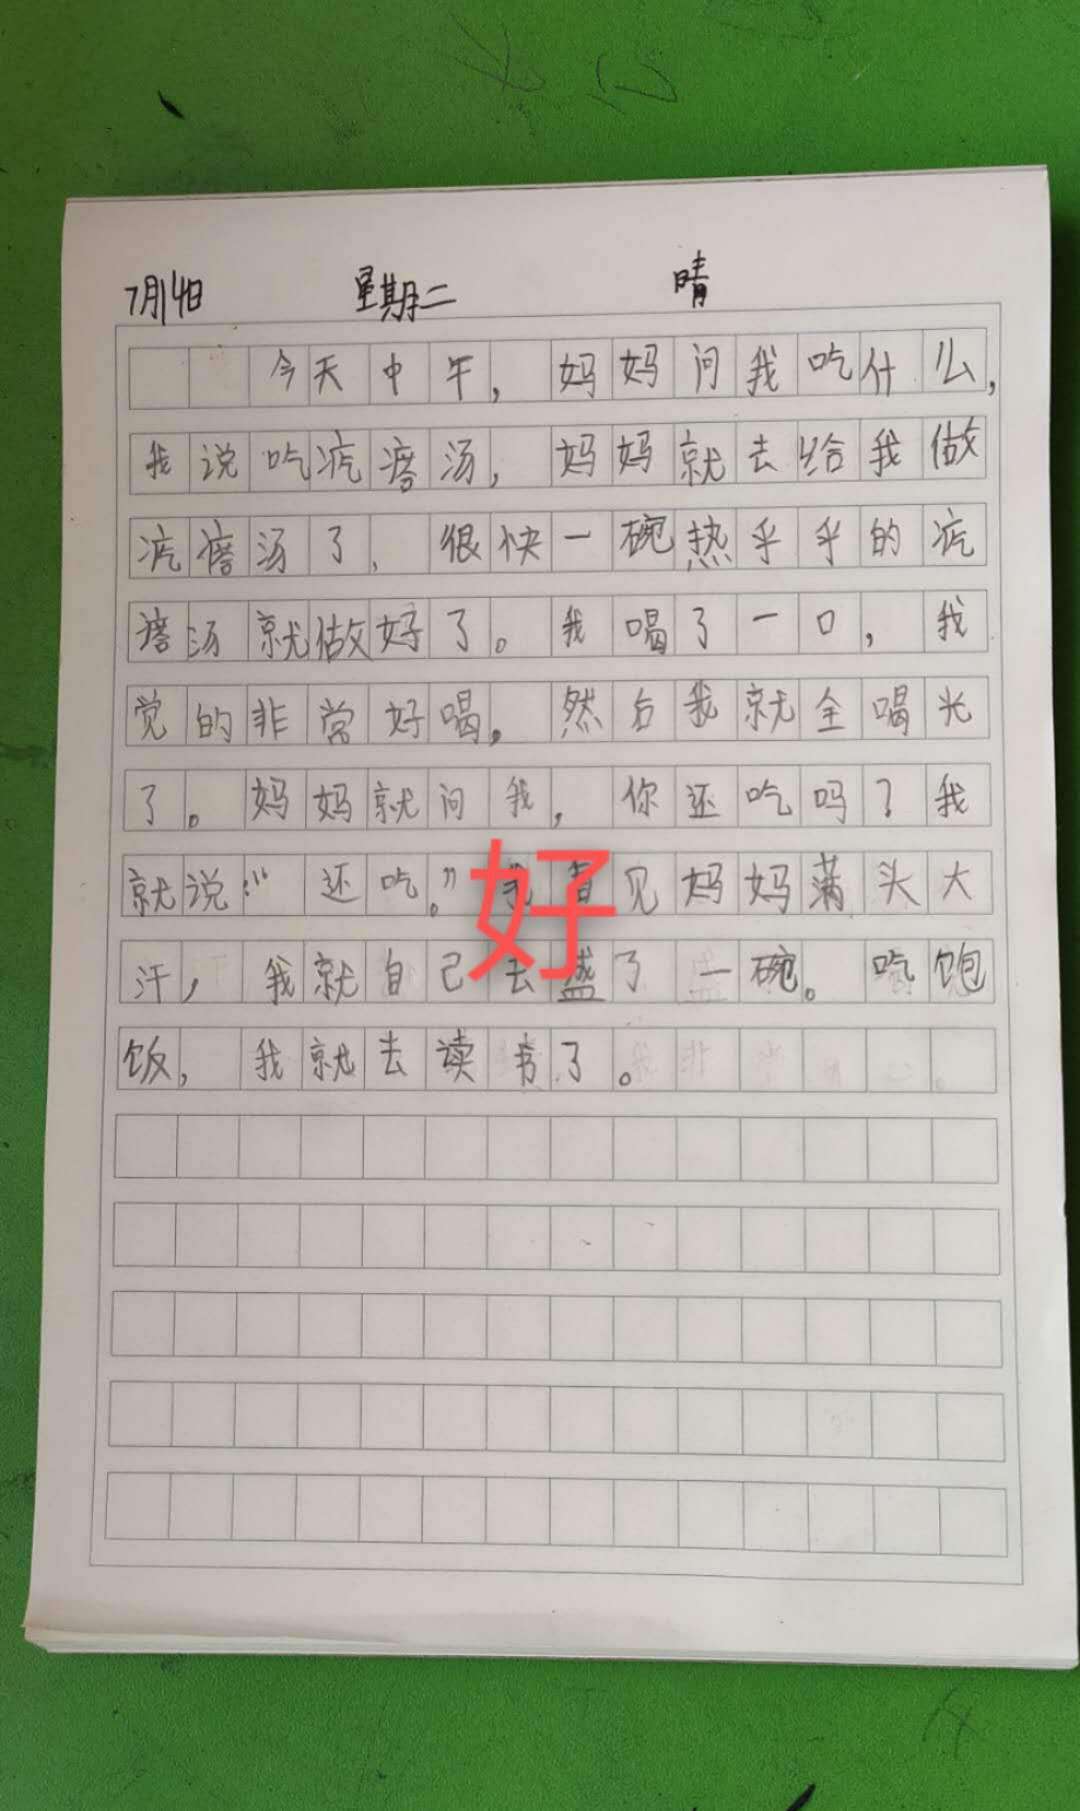 7月14日 星期二 晴
今天中午，妈妈问我吃什么，
我说吃疙瘩汤，妈妈就去给我做
疙瘩汤了，很快一碗热乎乎的疙
瘩汤就做好了。我喝了一口，我
觉的非常好喝，然后我就全喝光
了。妈妈就问我，你还吃吗？我
就说：“还吃。”我看见妈妈满头大
汗，我就自己去盛了一碗。吃饱
饭，我就去读书了。
好